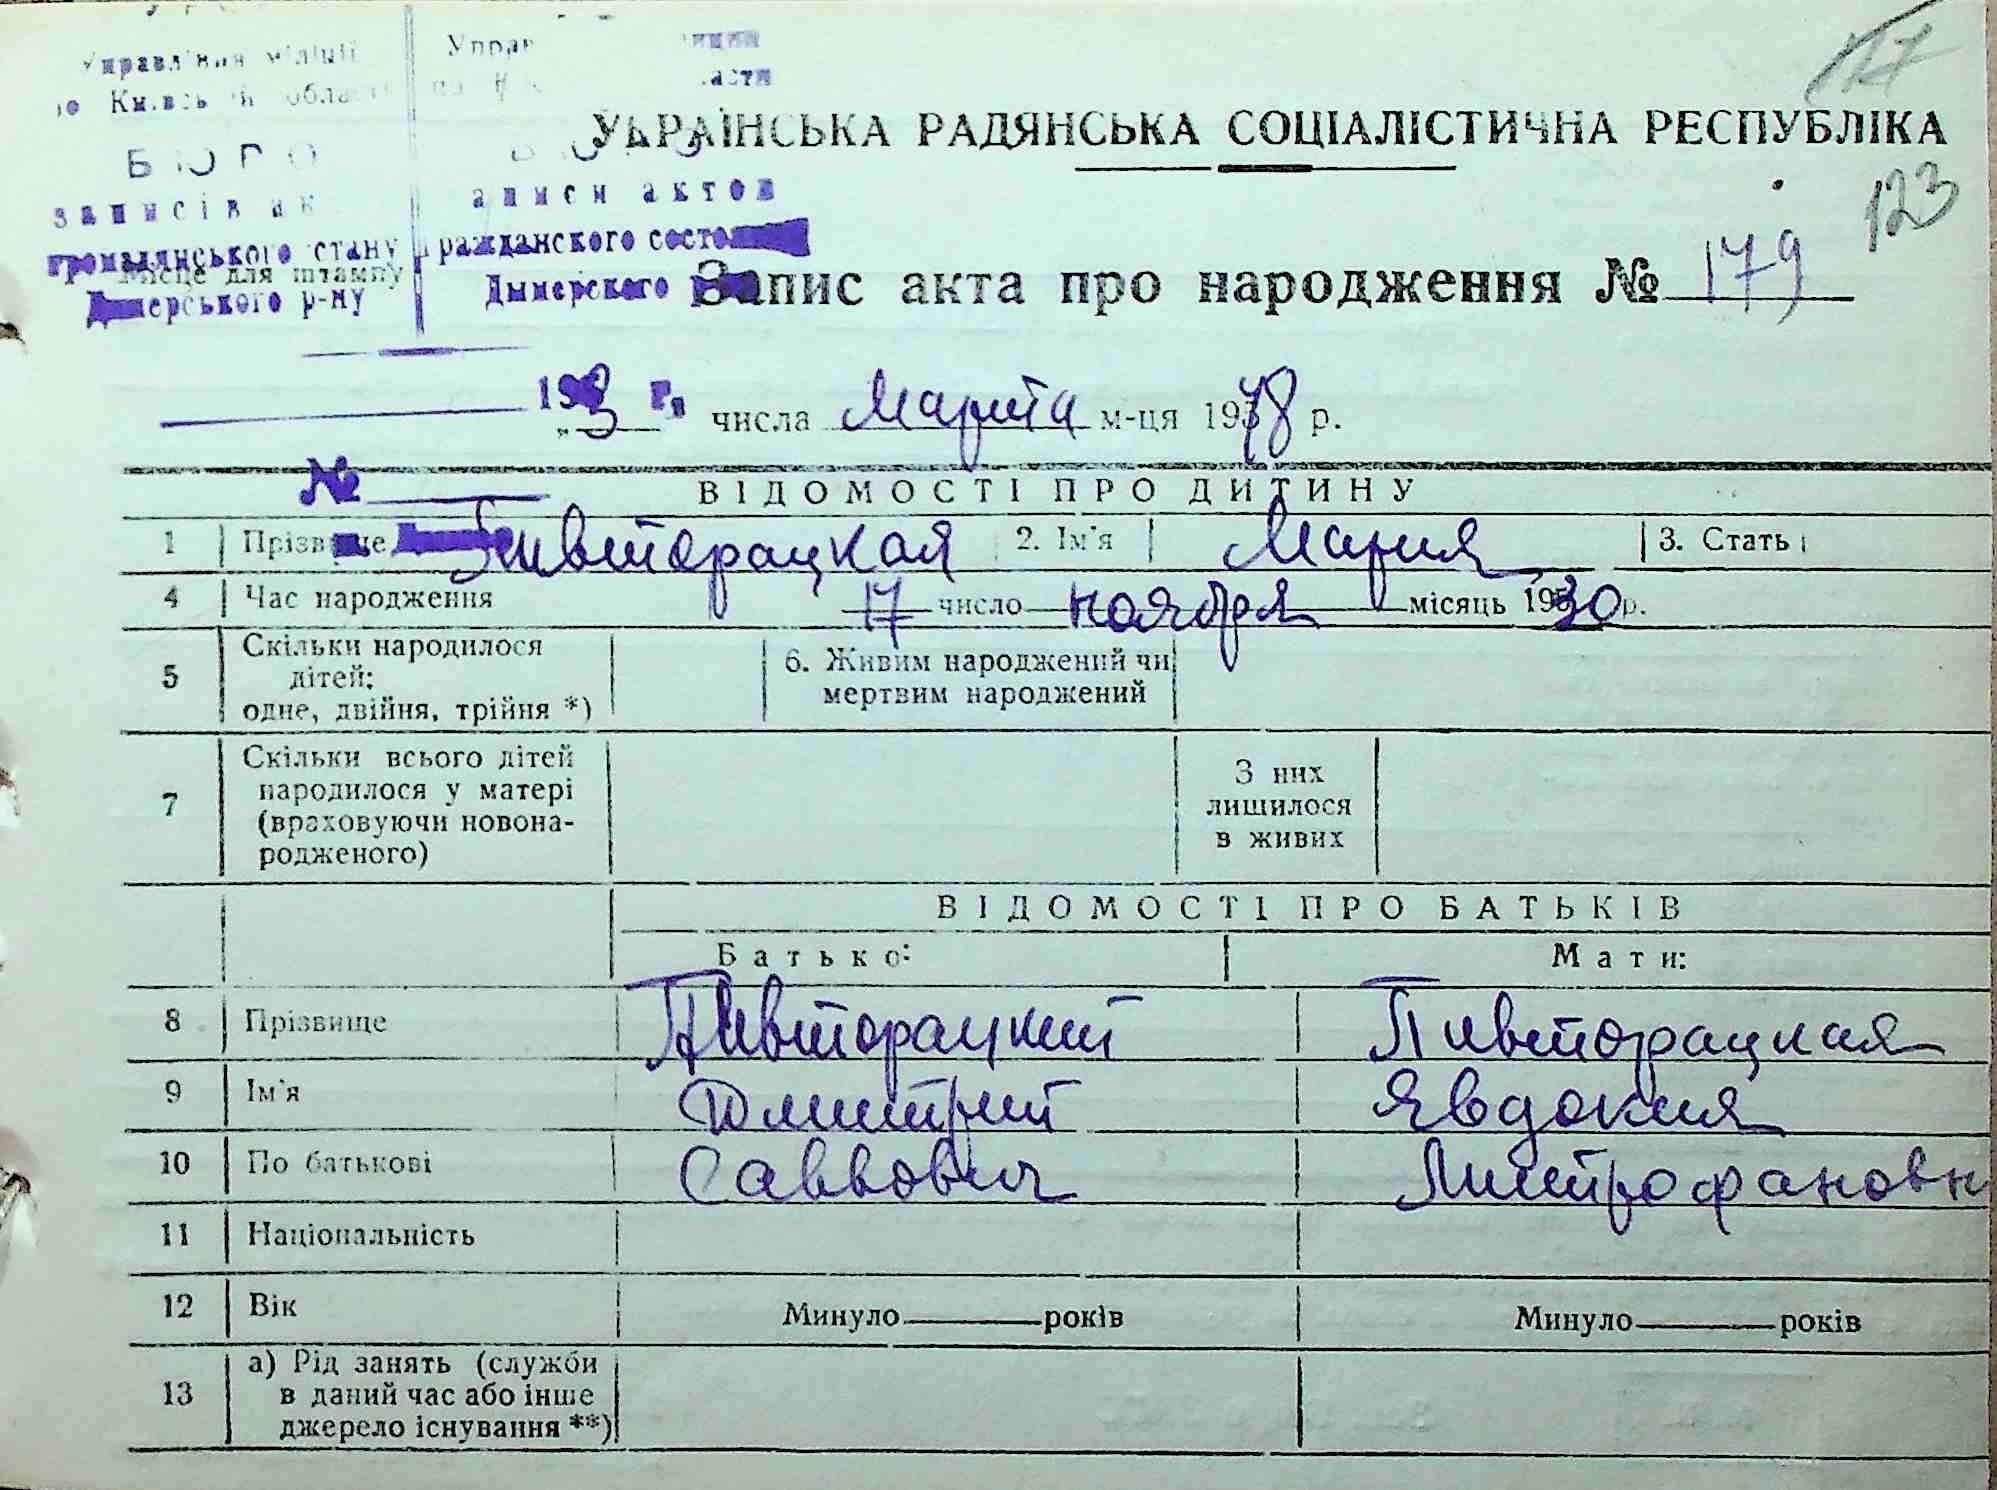 117
Управління міліції
по Київській області
БЮРО
записів ак
громадянського стану
Димерського р-ну
Управ лиции
по К ласти
Б Ю Р О
записи актов
гражданского состо
Дымерского
Місце для штампу
УКРАЇНСЬКА РАДЯНСЬКА СОЦІАЛІСТИЧНА РЕСПУБЛІКА
123
Запис акта про народження № 179
„3 числа Марта м-ця 1978 р.
№
ВІДОМОСТІ ПРО ДИТИНУ
1 Прізвище Пивторацкая 2. Ім'я Мария 3. Стать
4 Час народження 17 число ноября місяць 1930 р.
5 Скільки народилося дітей: одне, двійня, трійня *) 6. Живим народжений чи мертвим народжений
7 Скільки всього дітей народилося у матері (враховуючи новонародженого) З них лишилося в живих
ВІДОМОСТІ ПРО БАТЬКІВ
Батько: Мати:
8 Прізвище Пивторацкий Пивторацкая
9 Ім'я Дмитрий Явдокия
10 По батькові Саввович Митрофановн
11 Національність
12 Вік Минуло років Минуло років
13 а) Рід занять (служби в даний час або інше джерело існування **)